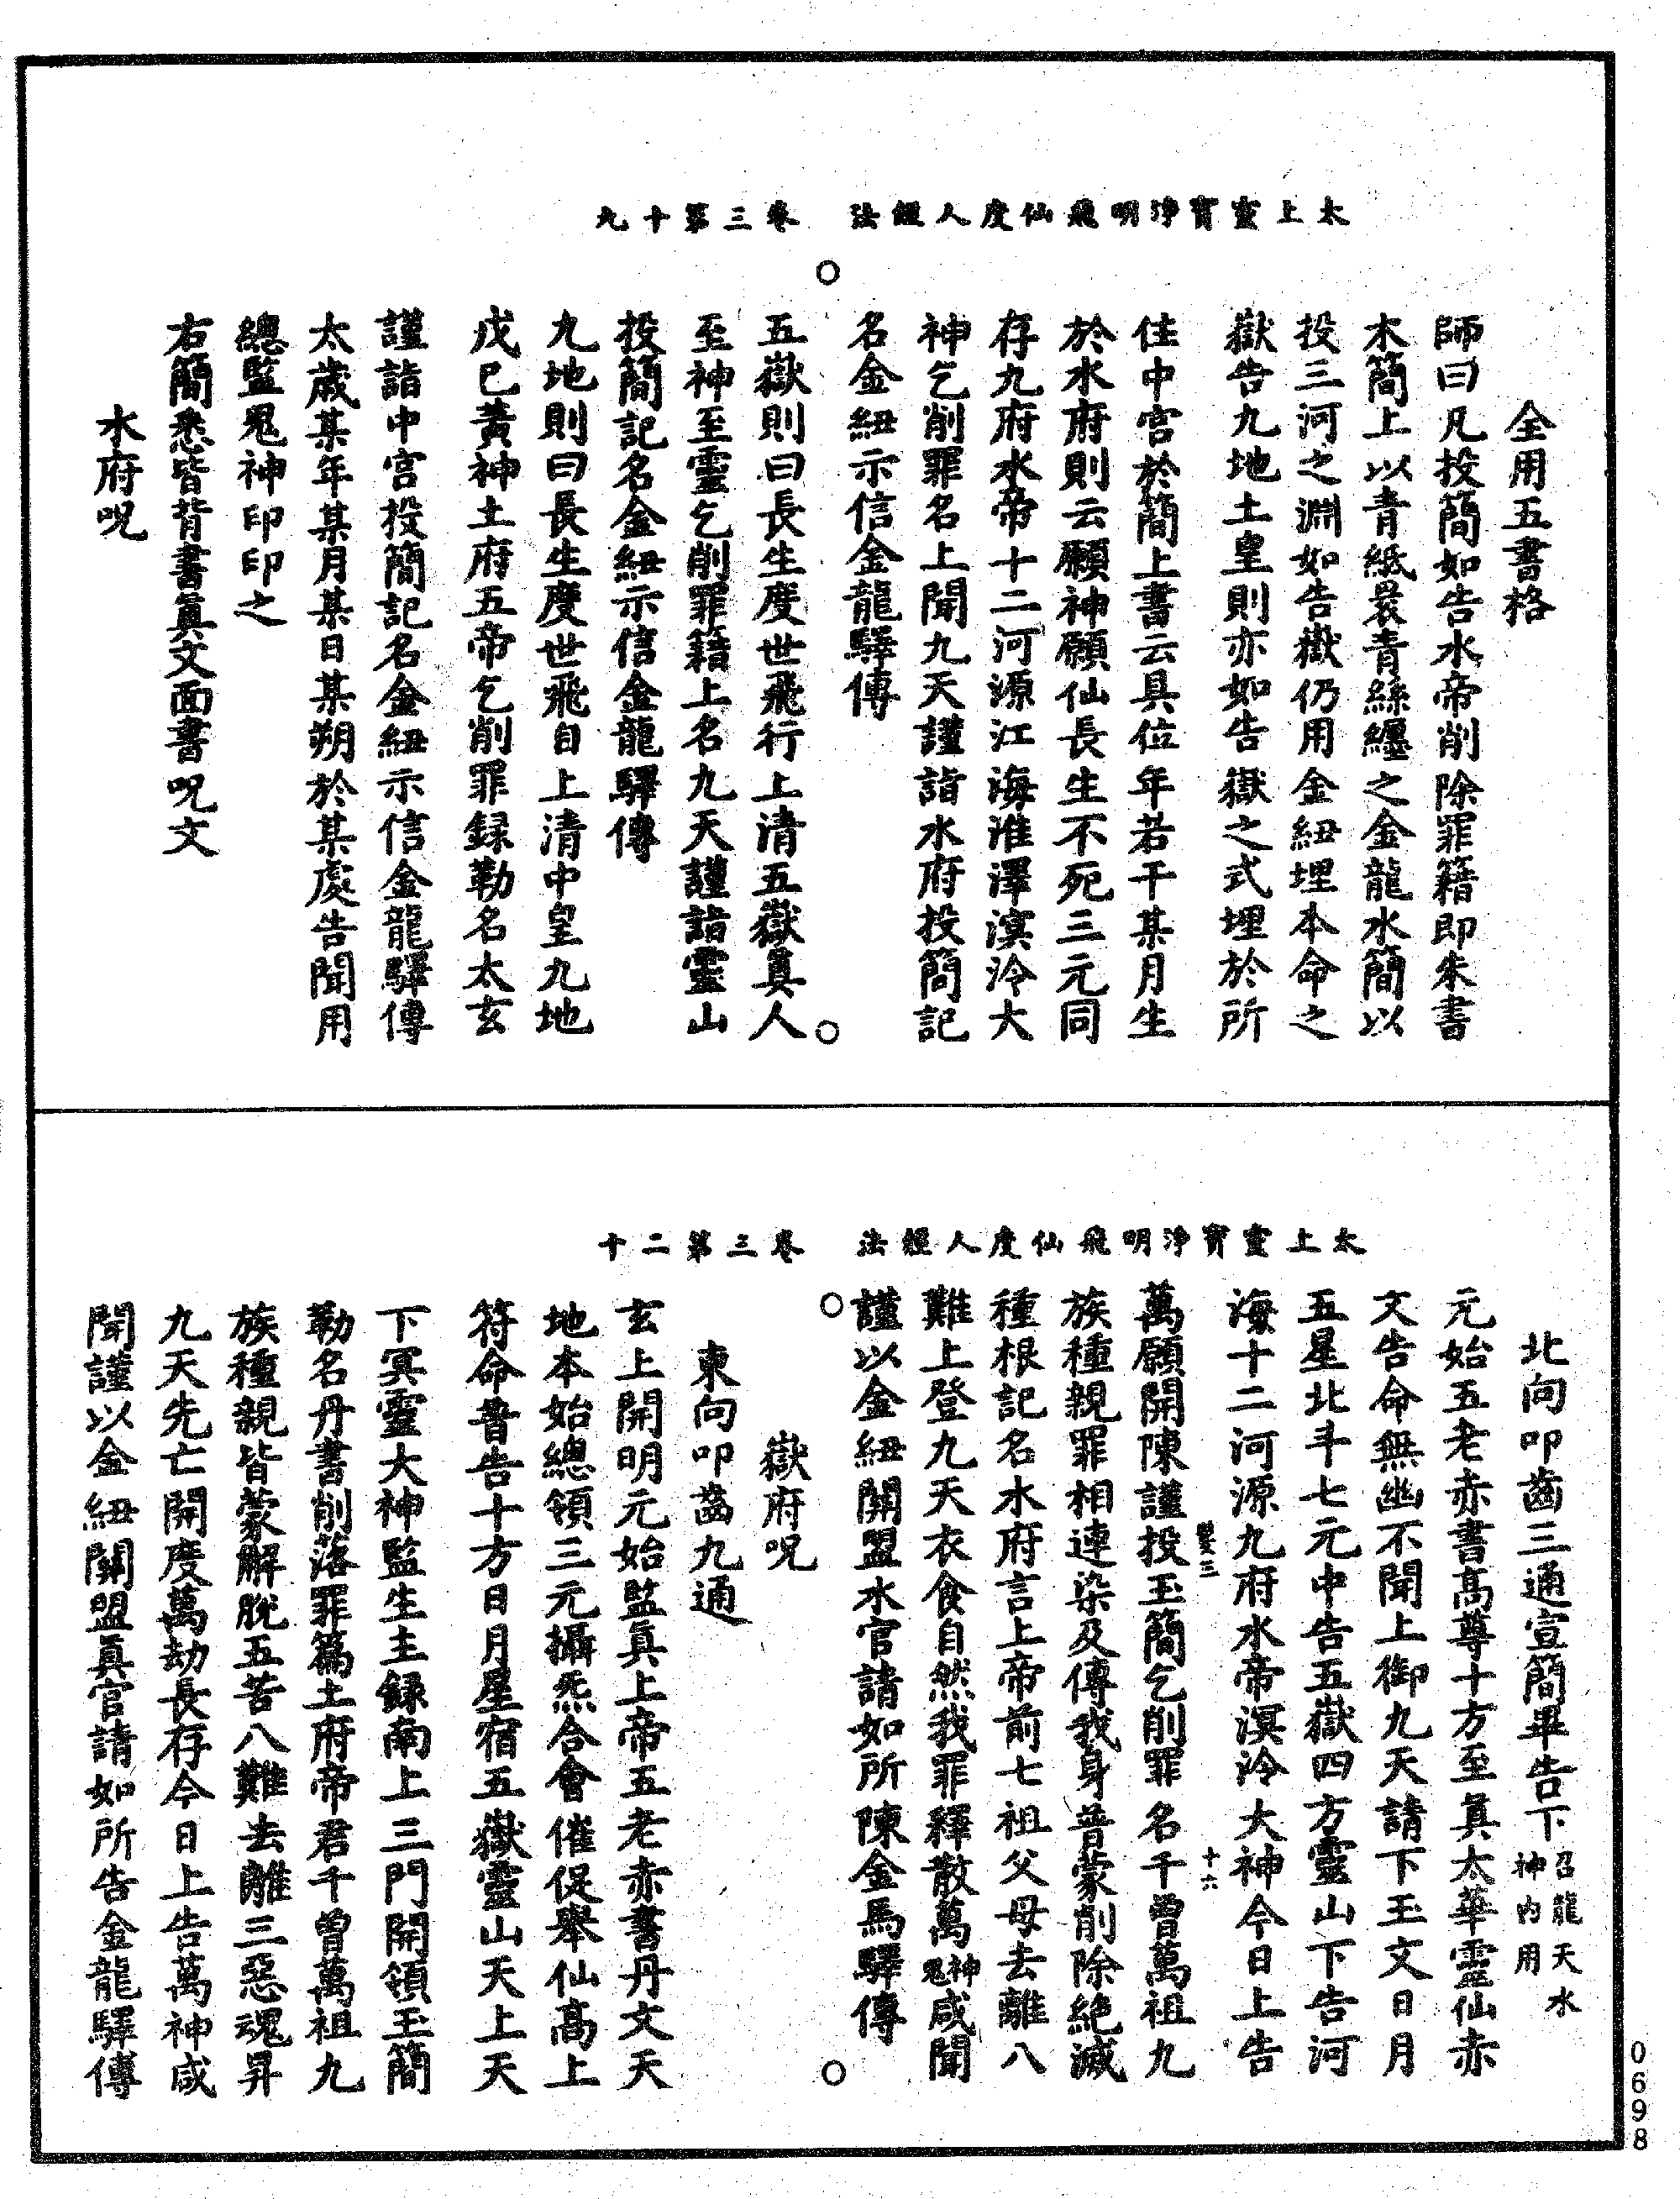 太上靈寶淨明飛仙度人經法　卷三第十九
全用五書格
師曰凡投簡如告水帝削除罪籍即朱書
木簡上以青紙裹青絲纏之金龍水簡以
投三河之淵如告嶽仍用金紐埋本命之
嶽告九地土皇則亦如告嶽之式埋於所
住中宮於簡上書云具位年若干某月生
於水府則云願神願仙長生不死三元同
存九府水帝十二河源江海淮澤溟泠大
神乞削罪名上聞九天謹詣水府投簡記
名金紐示信金龍驛傳
五嶽則曰長生度世飛行上清五嶽真人
至神至靈乞削罪籍上名九天謹詣靈山
投簡記名金紐示信金龍驛傳
九地則曰長生度世飛自上清中皇九地
戊己黃神土府五帝乞削罪録勒名太玄
謹詣中宮投簡記名金紐示信金龍驛傳
太歲某年某月某日某朔於某處告聞用
總監鬼神印印之
右簡悉皆背書真文面書呪文
水府呪
太上靈寶淨明飛仙度人經法　卷三第二十
北向叩齒三通宣簡畢告下召龍天水神內用
元始五老赤書高尊十方至真太華靈仙赤
文告命無幽不聞上御九天請下玉文日月
五星北斗七元中告五嶽四方靈山下告河
海十二河源九府水帝溟泠大神今日上告
變三　十六
萬願開陳謹投玉簡乞削罪名千曾萬祖九
族種親罪相連染及傳我身普蒙削除絕滅
種根記名水府言上帝前七祖父母去離八
難上登九天衣食自然我罪釋散萬神鬼咸聞
謹以金紐關盟水官請如所陳金馬驛傳
嶽府呪
東向叩齒九通
玄上開明元始監真上帝五老赤書丹文天
地本始總領三元攝炁合會催促舉仙高上
符命普告十方日月星宿五嶽靈山天上天
下冥靈大神監生主録南上三門開領玉簡
勒名丹書削落罪篇土府帝君千曾萬祖九
族種親皆蒙解脫五苦八難去離三惡魂昇
九天先亡開度萬劫長存今日上告萬神咸
聞謹以金紐關盟真官請如所告金龍驛傳
0698